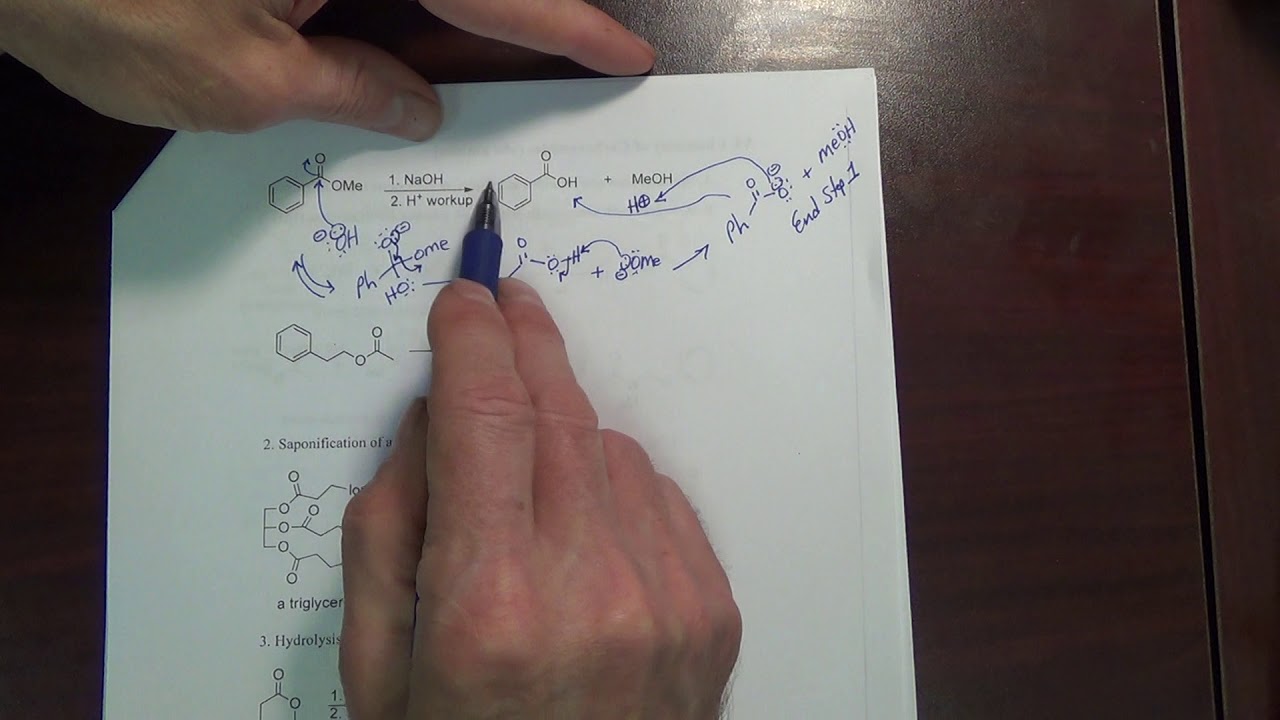 O
OMe
1. NaOH
2. H⁺ workup
O
OH
+ MeOH
H⊕
O
O
Ph
+ MeOH
End Step 1
⊖ OH
O ⊖
OMe
Ph
HO
O
O-H
+ ⊖ OMe
O
O
2. Saponification of a
O
O
O
O
O
O
a triglycer
3. Hydrolysis
O
O
1.
2.